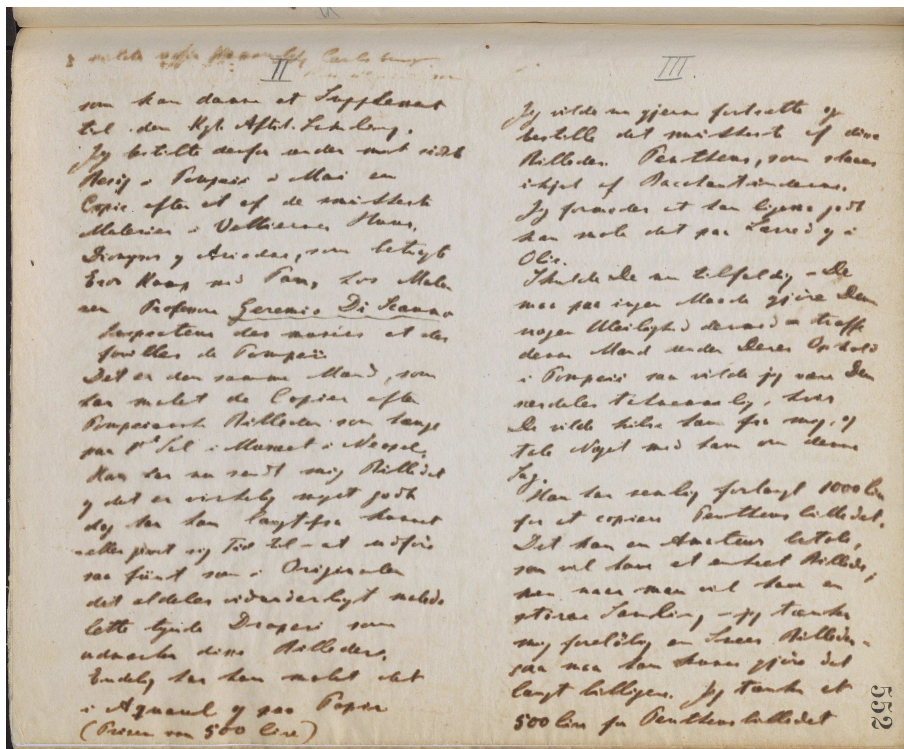 II
som kan danne et Supplement
til den Kgl. Afstøb. Samling.
Jeg bestilte derfor under mit sidste
Besøg i Pompeii i Mai en
Copie efter et af de smukkeste
Malerier i Vettiernes Huus,
Dionysos og Ariadne, som betragte
Eros Kamp med Pan, hos Male
ren Professor Geremio Di Scanno
Inspecteur des musées et des
fouilles de Pompeii
Det er den samme Mand, som
har malet de Copier efter
Pompeiansk Billeder som hange
paa 1st Sal i Museet i Neapel.
Han har nu sendt mig Billedet
og det er virkelig meget godt
dog har han langtfra kunnet
eller givet sig Tid til at udføre
saa fiint som i Originalen
det aldeles vidunderligt malede
lette tynde Draperi som
udmærker disse Billeder.
Endelig har han malet det
i Aquarel og paa Papir
(Prisen var 500 lire)
III
Jeg vilde nu gjerne fortsætte og
bestille det smukkeste af disse
Billeder Pentheus, som slaaes
ihjel af Bacchantinderne.
Jeg formoder at han ligesaa godt
kan male det paa Lærred og i
Olie.
Skulde De nu tilfældig – De
maa paa ingen Maade gjøre Dem
nogen Uleilighed dermed – træffe
denne Mand under Deres Ophold
i Pompeii saa vilde jeg være Dem
særdeles taknemmelig, hvis
De vilde hilse ham fra mig, og
tale Noget med ham om denne
Sag.
Han har nemlig forlangt 1000 lire
for at copiere Pentheusbilledet.
Det kan en Amateur betale,
som vil have et enkelt Billede,
men naar man vil have en
større Samling – jeg tænker
mig foreløbig en Snees Billeder –
saa maa han kunne gjøre det
langt billigere. Jeg tænker at
500 lire for Pentheusbilledet
552